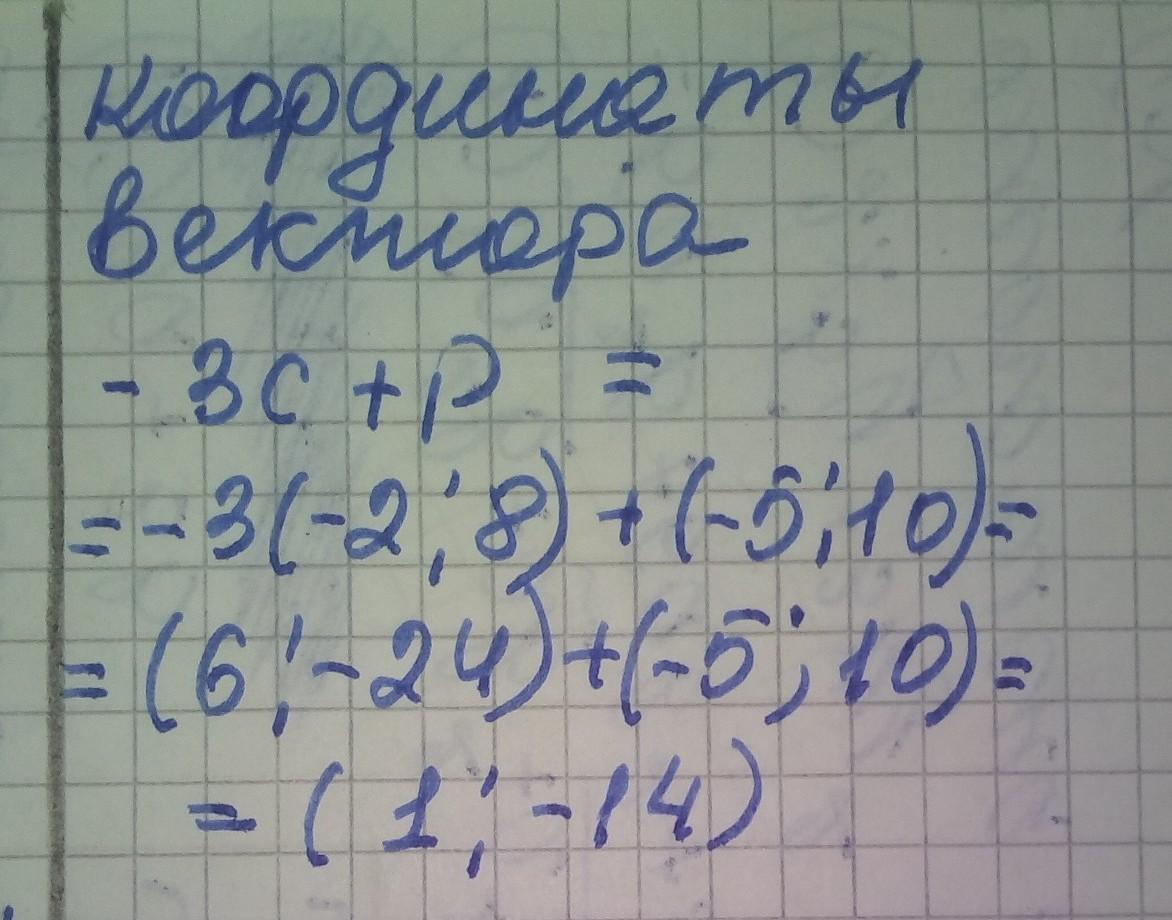 координаты
вектора
- 3c + p =
= - 3(-2; 8) + (-5; 10) =
= (6; -24) + (-5; 10) =
= (1; -14)